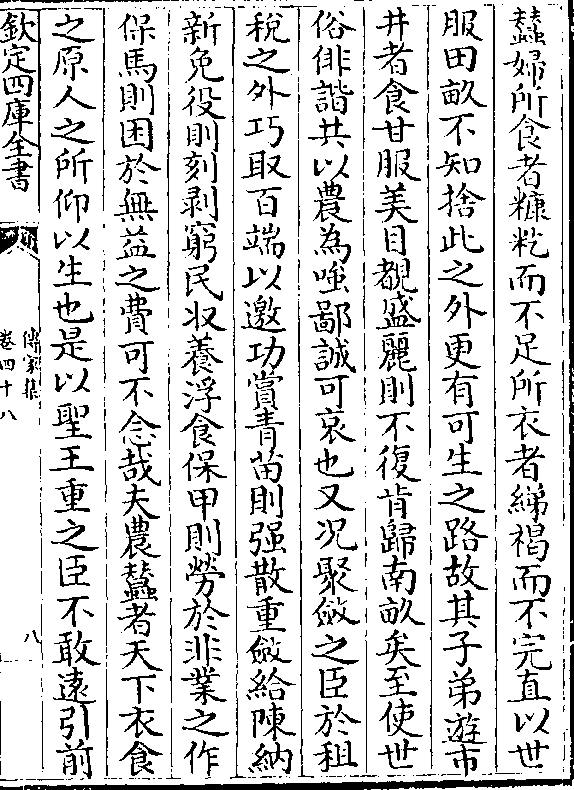 蠶婦所食者糠籺而不足所衣者綈褐而不完直以世
服田畝不知捨此之外更有可生之路故其子弟遊市
井者食甘服美目覩盛麗則不復肯歸南畝矣至使世
俗俳諧共以農為嗤鄙誠可哀也又况聚斂之臣於租
稅之外巧取百端以邀功賞青苗則强散重斂給陳納
新免役則刻剥窮民収養浮食保甲則勞於非業之作
保馬則困於無益之費可不念哉夫農蠶者天下衣食
之原人之所仰以生也是以聖王重之臣不敢遠引前
欽定四庫全書
傳家集
卷四十八
八